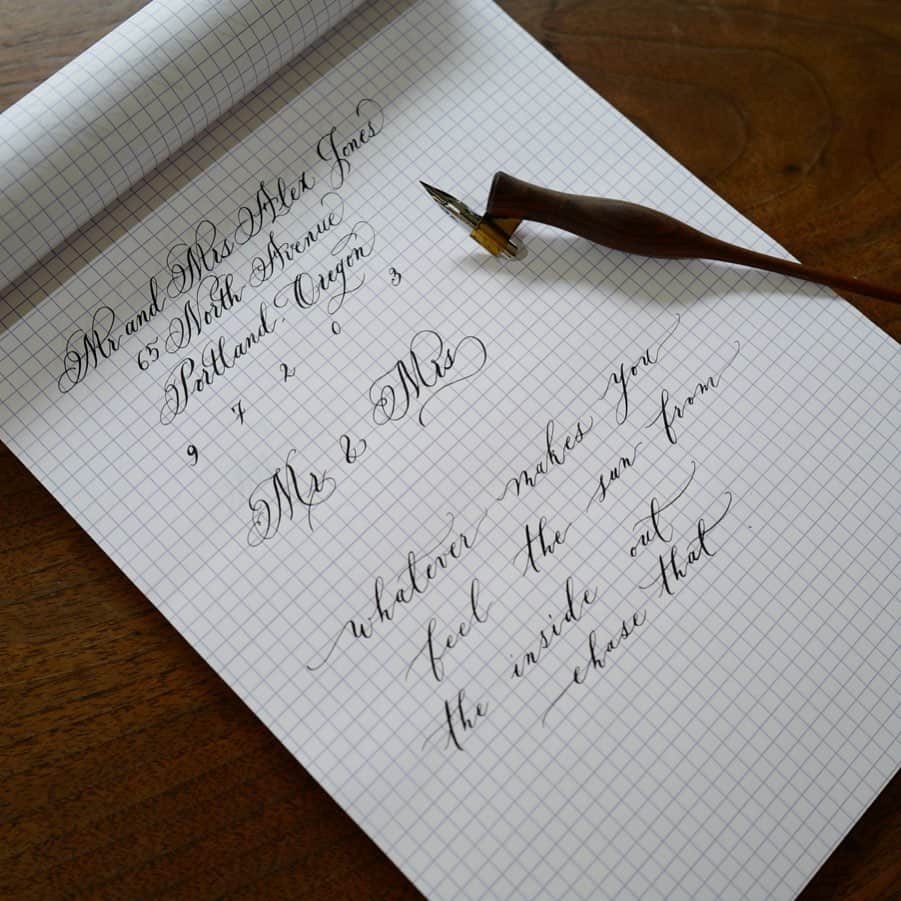 Mr and Mrs Alex Jones
65 North Avenue
Portland, Oregon
9 7 2 0 3
Mr & Mrs
whatever makes you
feel the sun from
the inside out
chase that